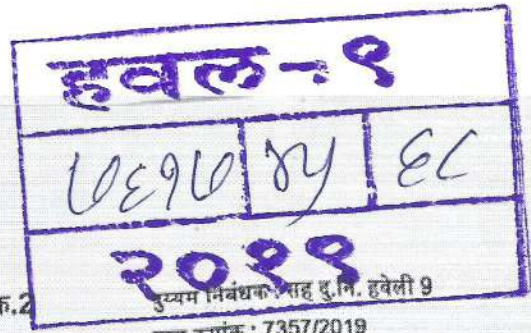 हवल-९
६८
२०१९
क्र.2 दुय्यम निबंधक : सह दु.नि. हवेली 9
क्रमांक : 7357/2019